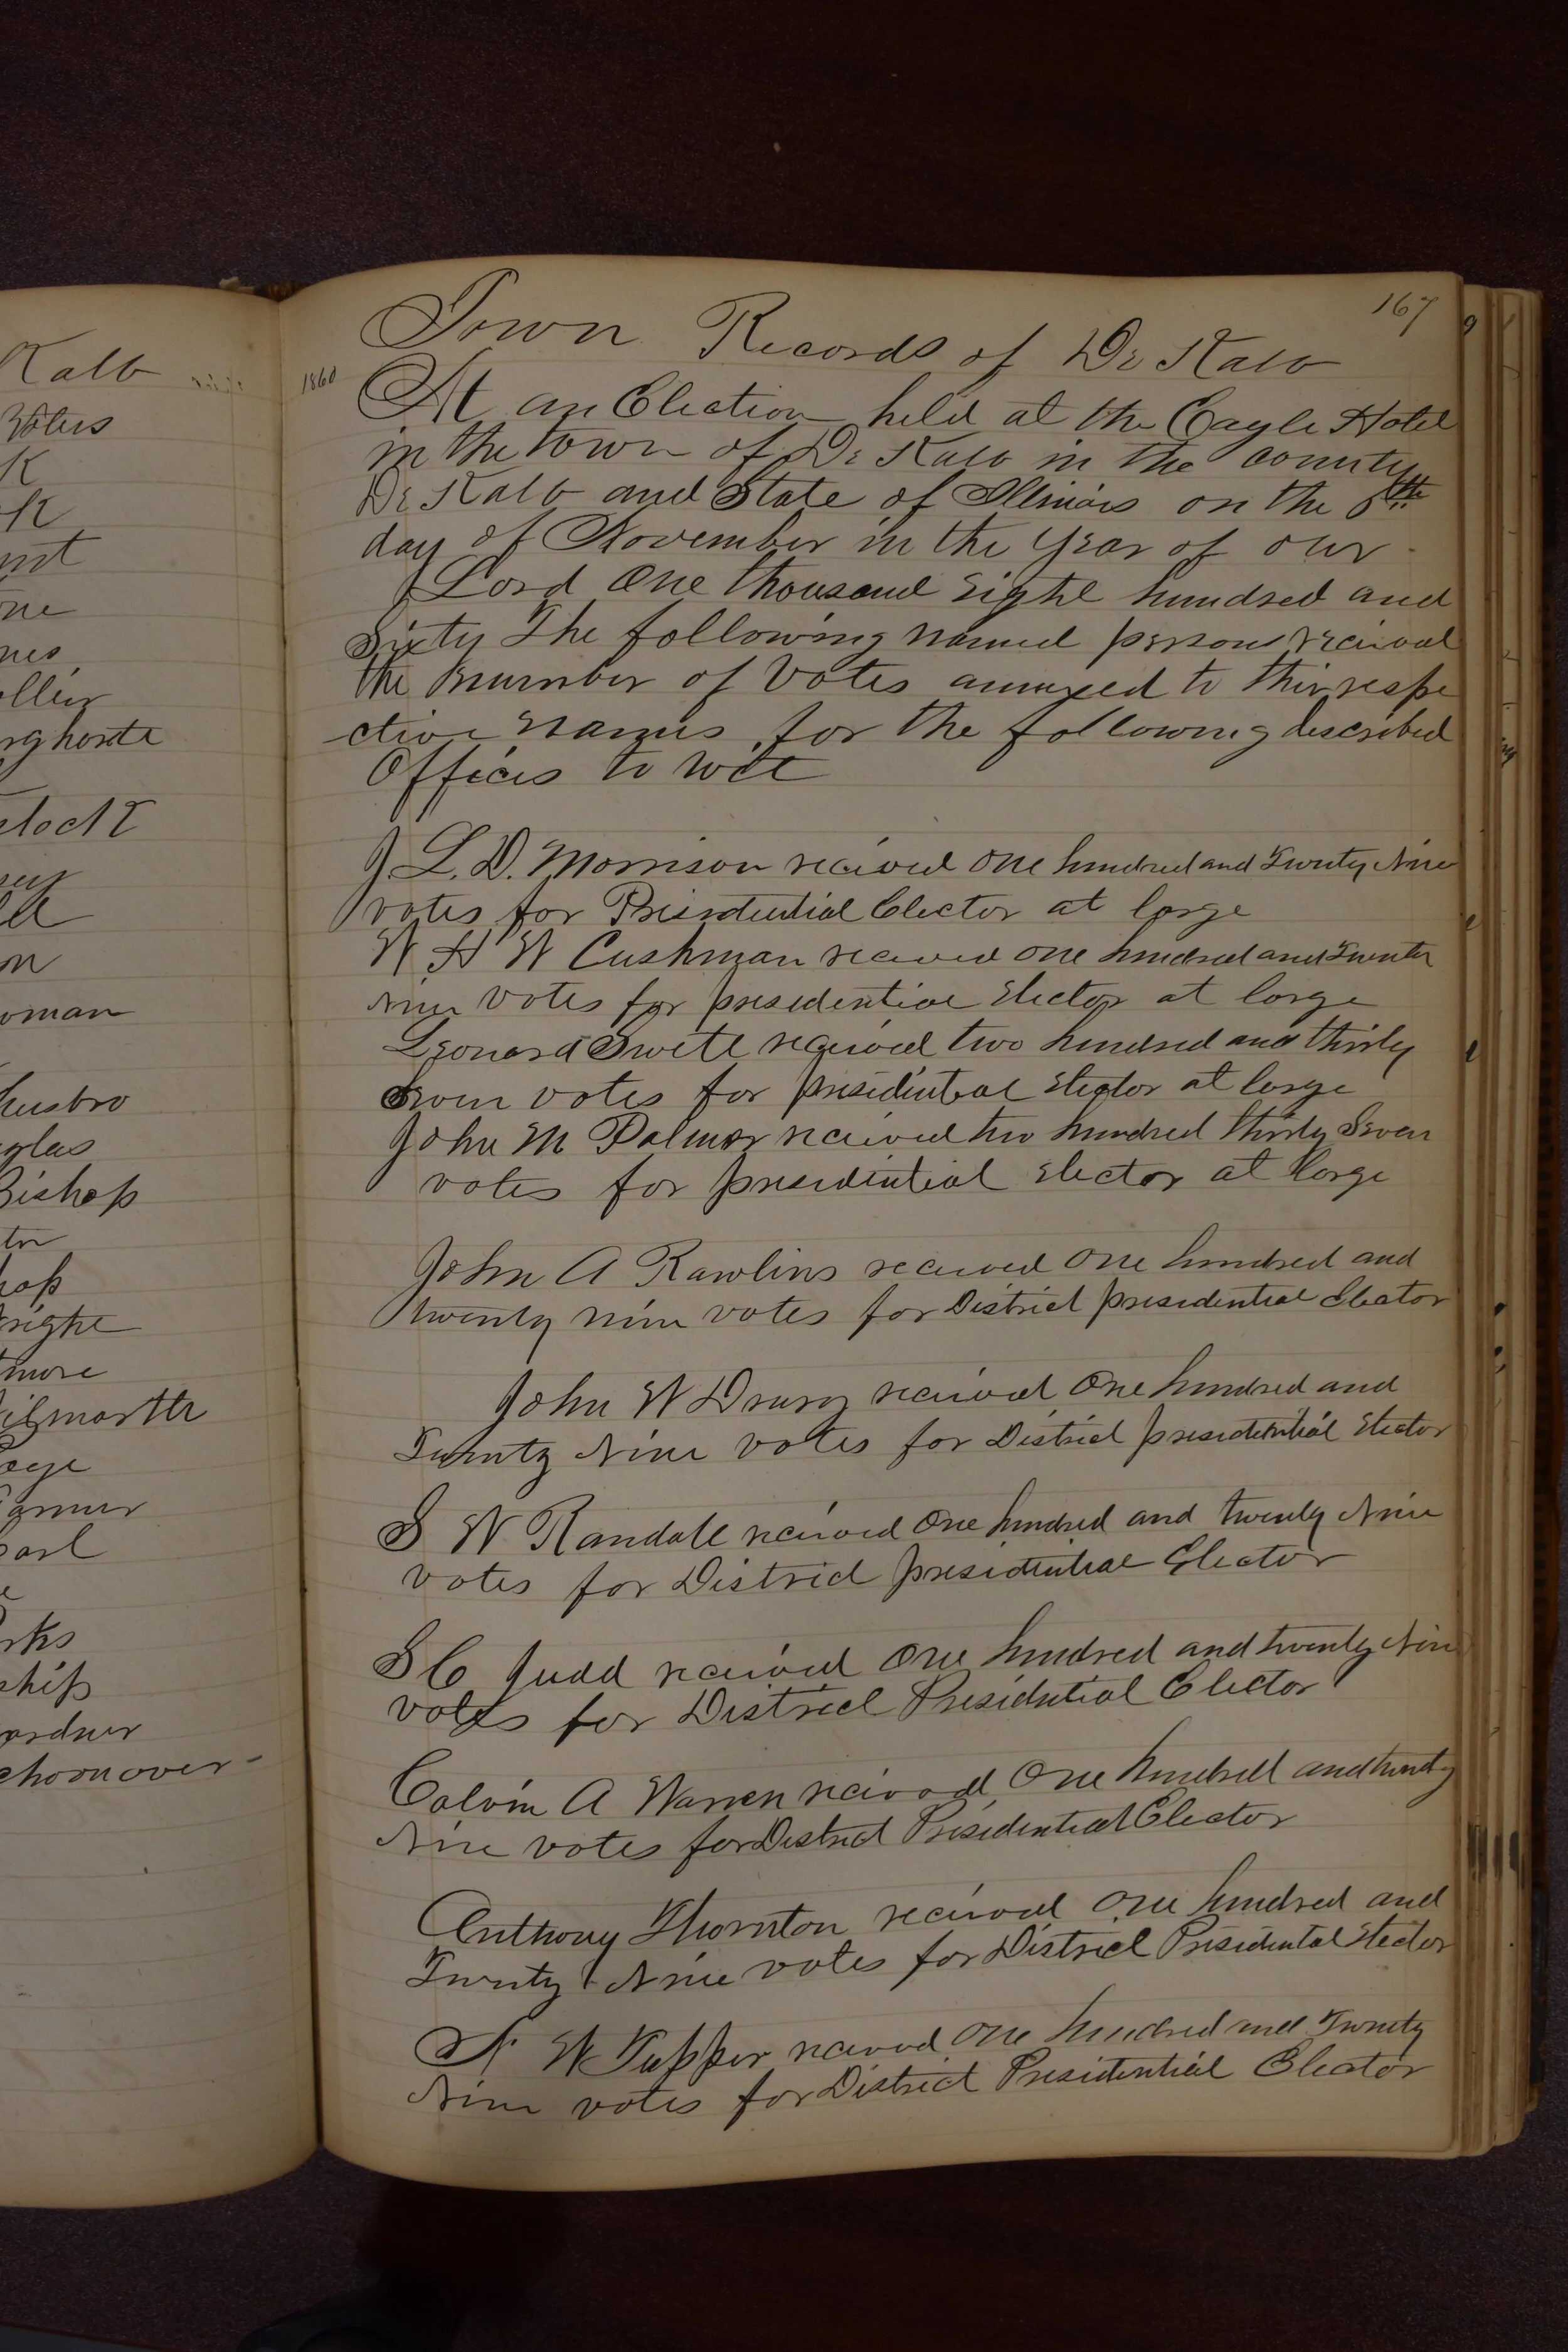 Kalb
Voters
K
K
one
nes
ollin
rghorste
stock
on
oman
husbro
glas
Bishop
ton
hop
right
tmore
ilmarth
age
armer
earl
rks
ship
ardner
choonover
167
Town Records of De Kalb
1860
At an Election held at the Eagle Hotel
in the town of De Kalb in the county
De Kalb and State of Illinois on the 6th
day of November in the year of our
Lord One thousand Eight hundred and
Sixty The following named persons received
the number of Votes annexed to thir respe
ctive names for the following described
Offices to wit
J L. D. Morrison recived one hundred and Twenty Nine
votes for Presidential Elector at large
W H W Cushman recived one hundred and Twenty
Nine votes for presidential Elector at large
Leonard Swett recived two hundred and thirty
Seven votes for presidential Elector at large
John M Palmer recived two hundred thirty Seven
votes for presidential Elector at large
John A Rawlins recived one hundred and
twenty nine votes for District presidential Elector
John W Drury recived One hundred and
Twenty Nine votes for District presidential Elector
S W Randall recived One hundred and twenty Nine
votes for District presidential Elector
S C Judd recived One hundred and twenty Nine
votes for District Presidential Elector
Calvin A Warren recived One hundred and twenty
Nine votes for District Presidential Elector
Anthony Thornton recived one hundred and
Twenty Nine votes for District Presidental Elector
N W Tupper recived one hundred and Twenty
Nine votes for District Presidential Elector